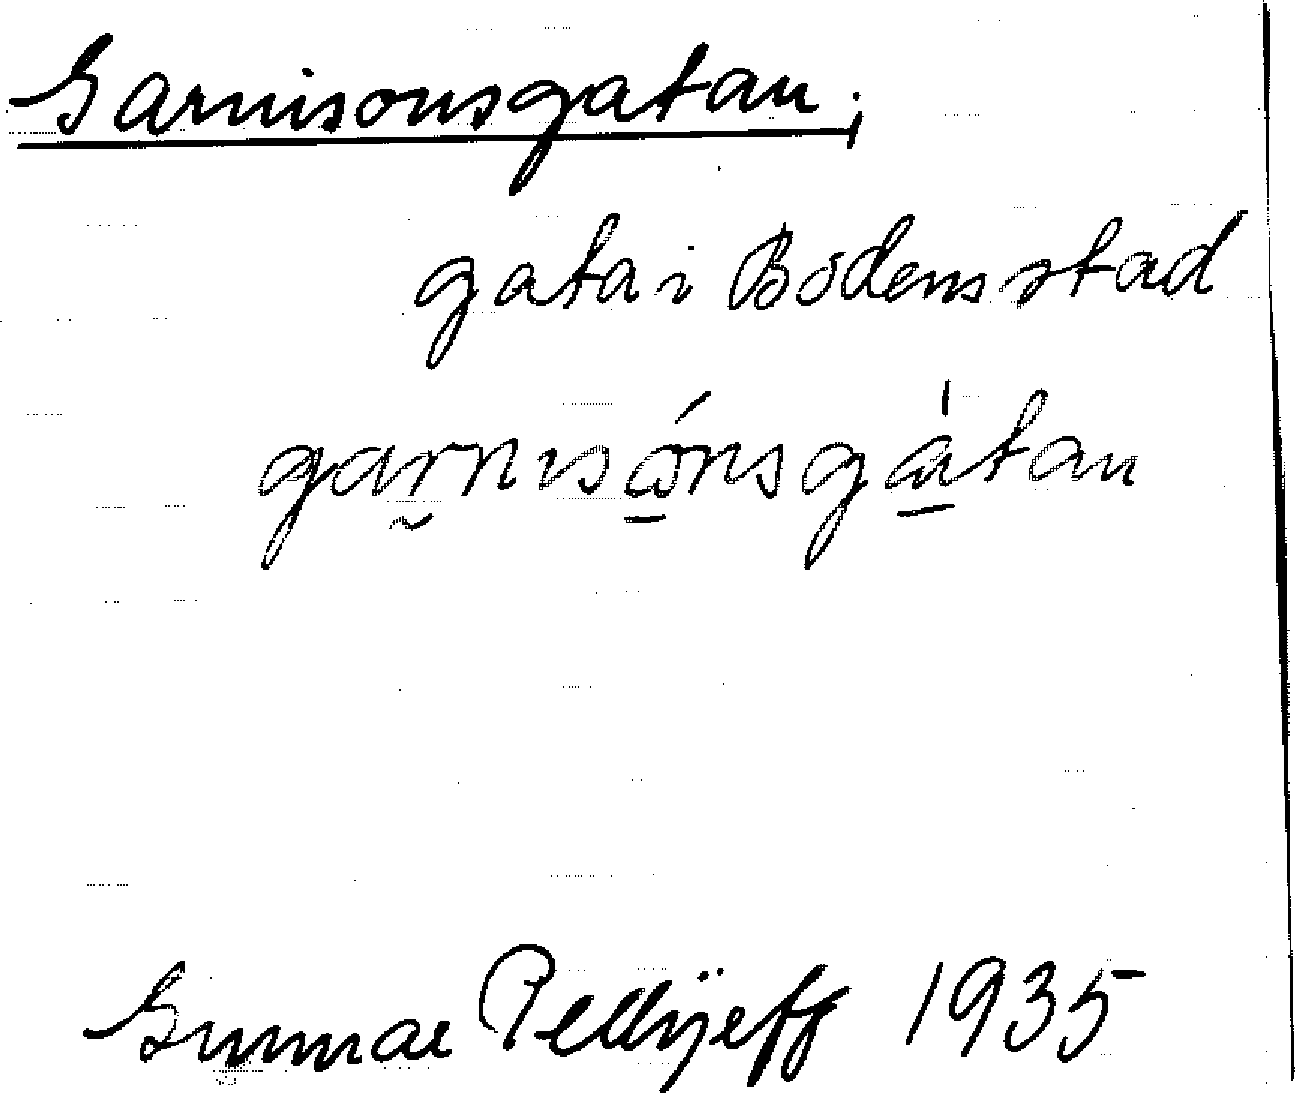 Garnisonsgatan;
gata i Bodens stad
garnisónsgàtan
Gunnar Pellijeff 1935